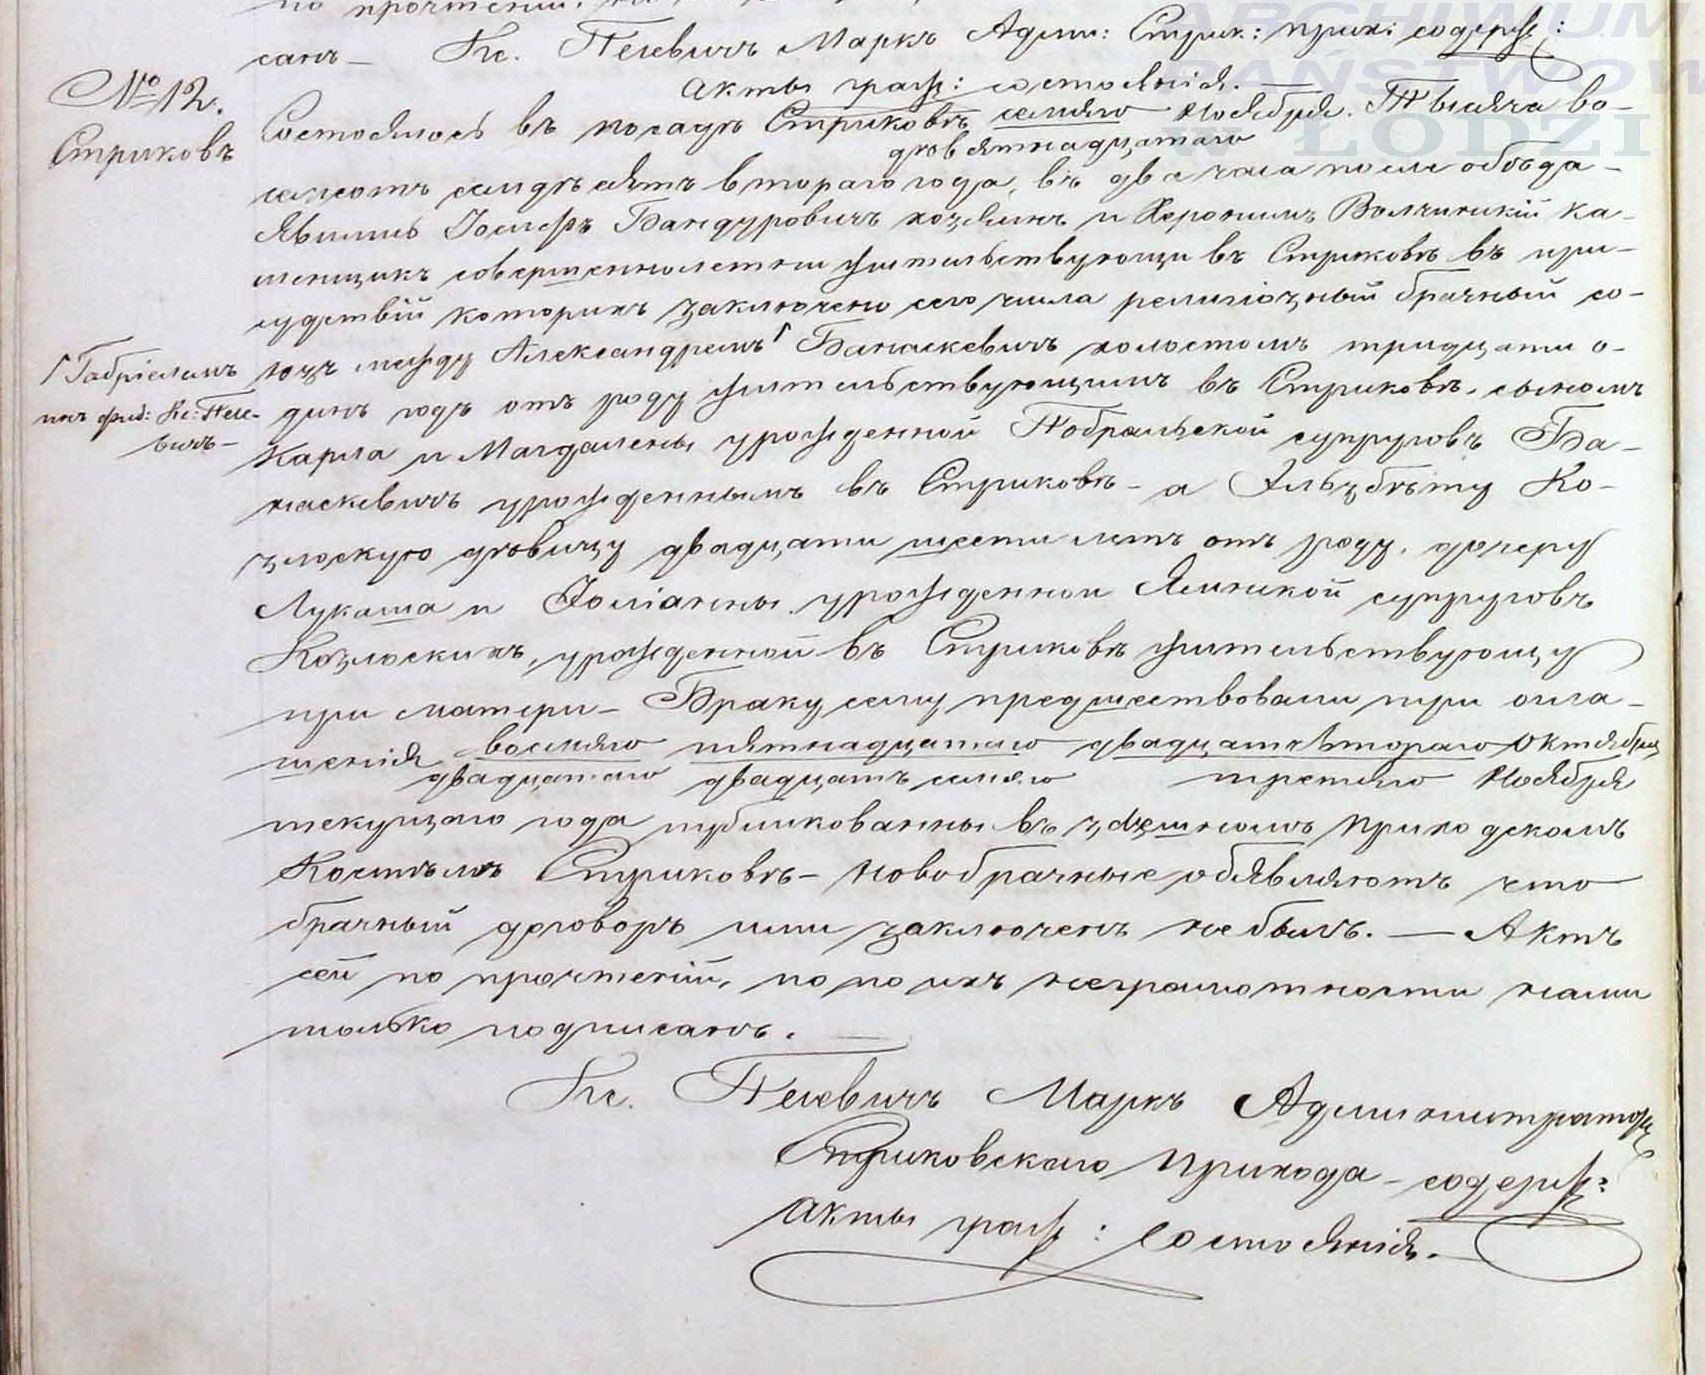 по прочтении,
санъ — Кс. Пелевичъ Маркъ Адми: Стрик: прих: содерж:
акты граж: состоянія. —
№ 12.
Стриковъ
Состоялось въ посадѣ Стриковѣ седмаго Ноября. Тысяча во-
девятнадцатаго
семсотъ семдѣсятъ втораго года, въ два часа после обѣда —
явились Іосифъ Бандуровичъ хозяинъ и Херонимъ Волчинскій ка-
менщикъ совершеннолетни жительствующи въ Стриковѣ въ при-
судствій которихъ заключено сего числа религіозный брачный со-
юзъ между Александремъ Ѓ Банаскевичъ холостомъ тридцати о-
Ѓ Габріелемъ
кс: Пеле-
вичъ —
динъ годъ отъ роду жительствующимъ въ Стриковѣ, сыномъ
Карла и Магдалены урожденной Побральской супруговъ Ба-
наскевичъ урожденнымъ въ Стриковѣ — а Эльзбѣту Ко-
злоскую дѣвицу двадцати шести летъ отъ роду, дочерь
Лукаша и Юліанны урожденной Ялинской супруговъ
Козлоскихъ, урожденной въ Стриковѣ жительствующу
при матери — Браку сему предшествовали три огла-
шенія восмяго пятнадцатаго двадцатьвтораго Октября
двадцатаго двадцать седмаго третяго Ноября
текущаго года публикованны въ здешномъ приходскомъ
Костѣлѣ Стриковѣ — новобрачные объявляютъ что
брачный договоръ ими заключенъ небылъ. — Актъ
сей по прочтеній, по по ихъ неграмотности нами
только подписанъ. —
Кс. Пелевичъ Маркъ Администраторъ
Стриковскаго Прихода — содерж:
Акты граж: Состоянія. —
ARCHIWUM
PAŃSTWOW
W ŁODZI